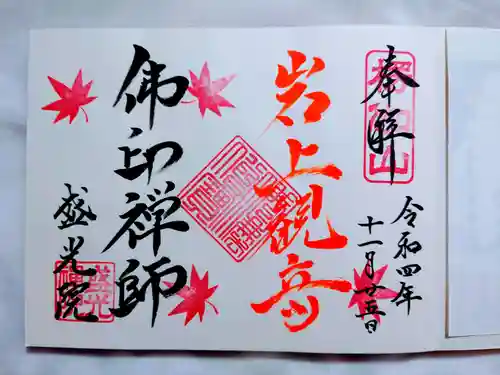 奉拝
令和四年
十一月廿五日
岩上観音
佛印禅師
盛光院